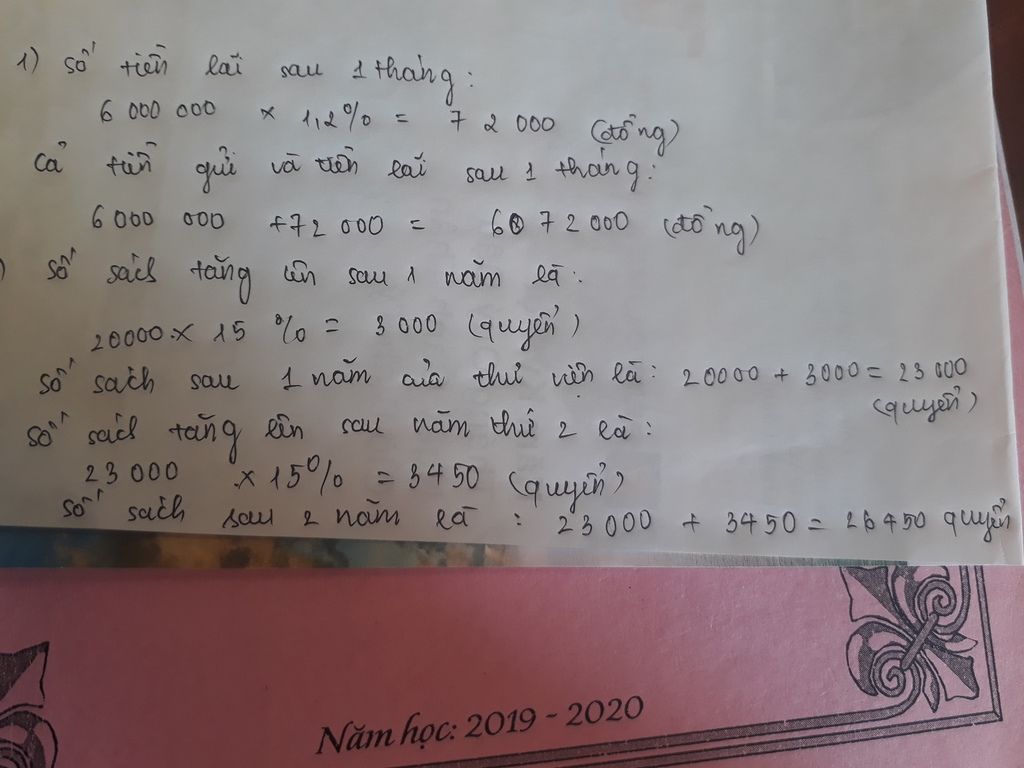 1) Số tiền lãi sau 1 tháng:
6 000 000 × 1,2% = 72 000 (đồng)
Cả tiền gửi và tiền lãi sau 1 tháng:
6 000 000 + 72 000 = 6 072 000 (đồng)
) Số sách tăng lên sau 1 năm là:
20000 × 15 % = 3 000 (quyển)
Số sách sau 1 năm của thư viện là: 20000 + 3000 = 23 000
(quyển)
Số sách tăng lên sau năm thứ 2 là:
23 000 × 15% = 3450 (quyển)
Số sách sau 2 năm là : 23 000 + 3450 = 26 450 quyển
Năm học: 2019 - 2020